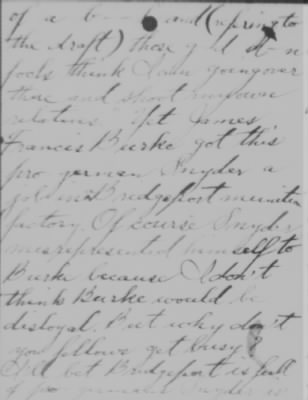 of a and (refering to
the draft) those g d d n
fools think I am going over
there and shoot my own
relatives. Yet James
Francis Burke got this
pro german Snyder a
job in a Bridgeport munition
factory. Of course Snyder
misrepresented himself to
Burke because I don't
think Burke would be
disloyal. But why don't
you fellows get busy?
I'll bet Bridgeport is full
of pro Snyder is